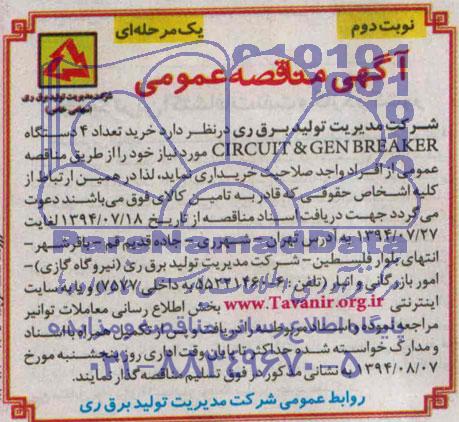 نوبت دوم
یک مرحله‌ای
آگهی مناقصه عمومی
شرکت مدیریت تولید برق ری
(سهامی خاص)
شرکت مدیریت تولید برق ری در نظر دارد خرید تعداد ۴ دستگاه
CIRCUIT & GEN BREAKER مورد نیاز خود را از طریق مناقصه
عمومی از افراد واجد صلاحیت خریداری نماید، لذا در همین ارتباط از
کلیه اشخاص حقوقی که قادر به تامین کالای فوق می‌باشند دعوت
می‌گردد جهت دریافت اسناد مناقصه از تاریخ ۱۳۹۴/۰۷/۱۸ لغایت
۱۳۹۴/۰۷/۲۷ به آدرس تهران - شهرری - جاده قدیم قم - باقرشهر -
انتهای بلوار فلسطین - شرکت مدیریت تولید برق ری (نیروگاه گازی) -
امور بازرگانی و انبار (تلفن: داخلی ۷۵۷۷) و یا به سایت
اینترنتی www.Tavanir.org.ir بخش اطلاع رسانی معاملات توانیر
مراجعه نموده و اسناد مربوطه را دریافت و پس از تکمیل همراه با اسناد
و مدارک خواسته شده حداکثر تا پایان وقت اداری روز پنجشنبه مورخ
۱۳۹۴/۰۸/۰۷ به نشانی مذکور در فوق تسلیم مناقصه‌گذار نمایند.
روابط عمومی شرکت مدیریت تولید برق ری
ParsNamadData
پایگاه اطلاع رسانی مناقصه و مزایده
۰۲۱-۸۸۳۴۹۶۷۰-۵